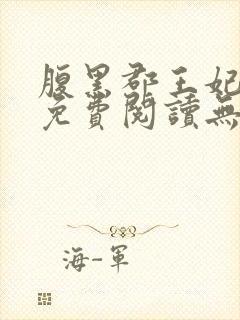 腹黑郡王妃
免費閱讀無
海-軍